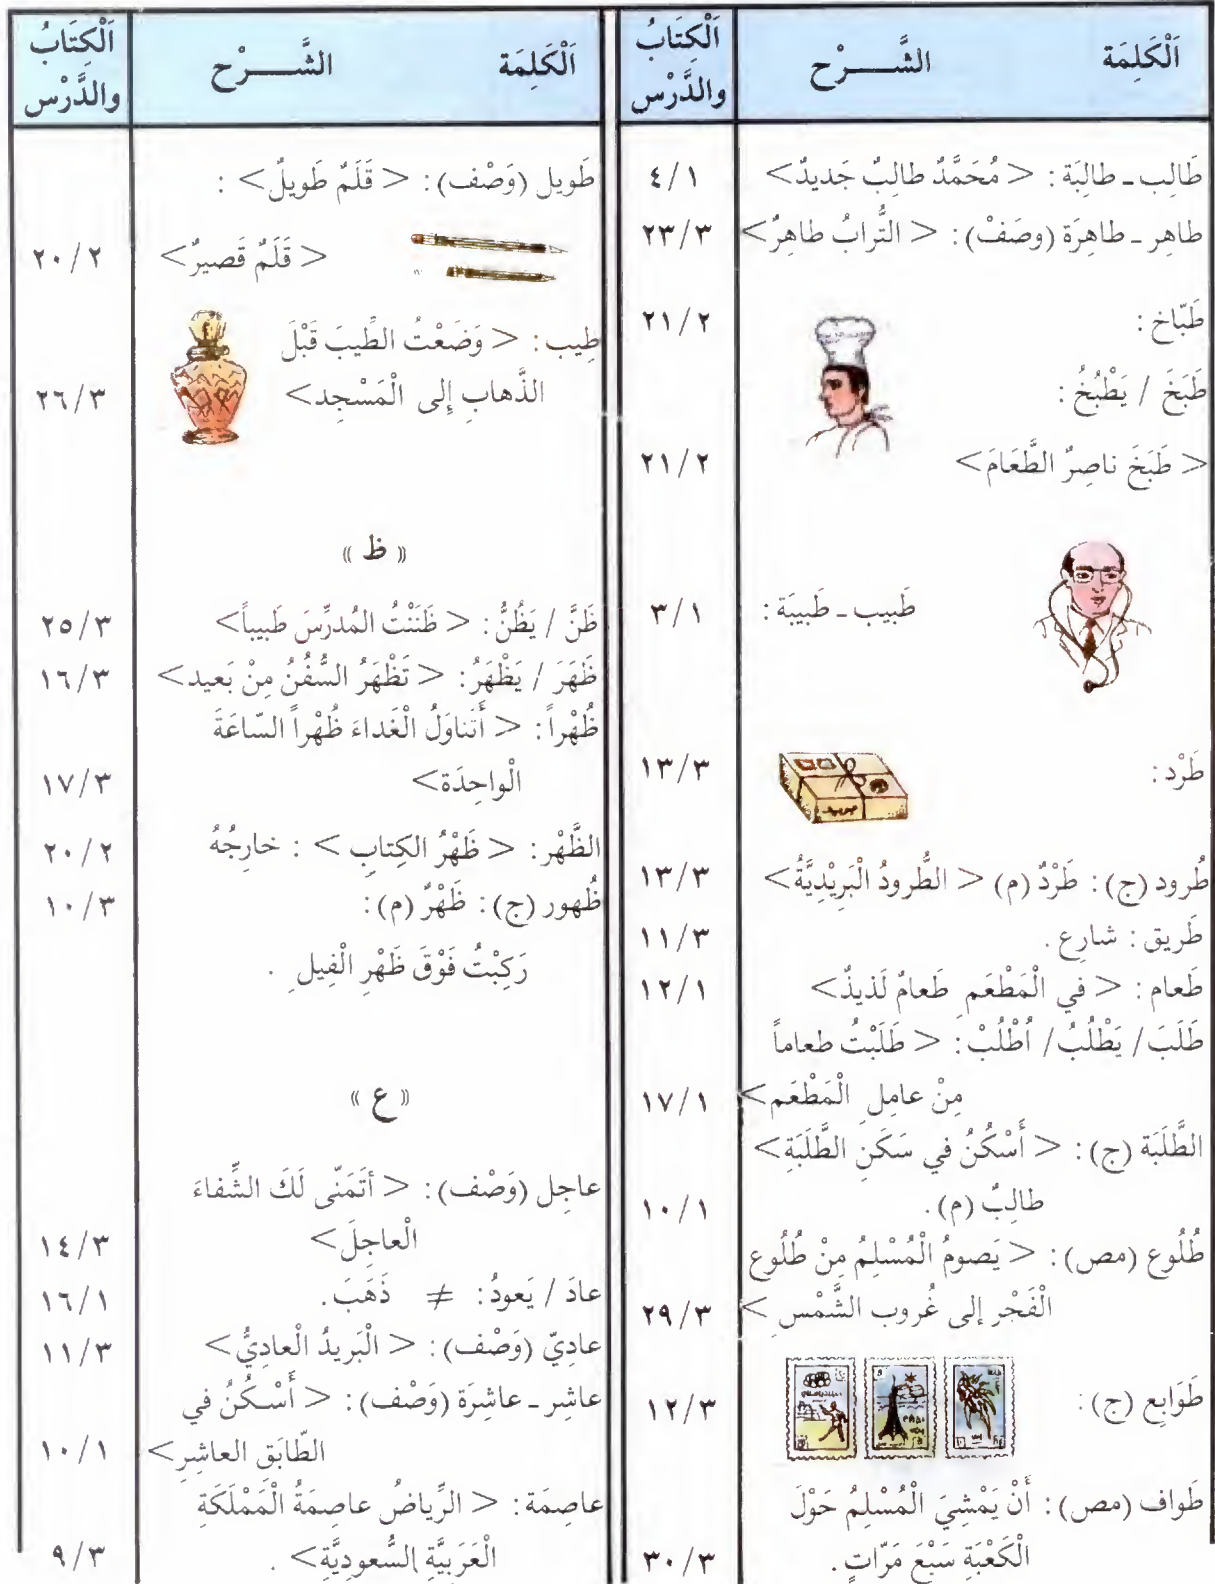 اَلْكَلِمَة الشَّــــرْح اَلْكِتَابُ والدَّرْس
طَالِب ـ طالِبَة : < مُحَمَّدٌ طالِبٌ جَديدٌ> ٤/١
طاهِر ـ طاهِرَة (وصَفْ) : < التُّرابُ طاهِرٌ> ٢٣/٣
طَبّاخ : ٢١/٢
طَبَخَ / يَطْبُخُ :
< طَبَخَ ناصِرٌ الطَّعَامَ> ٢١/٢
طَبيب ـ طَبيبَة : ٣/١
طَرْد : ١٣/٣
طُرود (ج) : طَرْدٌ (م) < الطُّرودُ الْبَرِيْدِيَّةُ> ١٣/٣
طَريق : شارِع . ١١/٣
طَعام : < في الْمَطْعَمِ طَعامٌ لَذيذٌ> ١٢/١
طَلَبَ / يَطْلُبُ / اُطْلُبْ : < طَلَبْتُ طعاماً
مِنْ عامِلِ الْمَطْعَم> ١٧/١
الطَّلَبَة (ج) : < أَسْكُنُ في سَكَنِ الطَّلَبَةِ>
طالِبٌ (م) . ١٠/١
طُلُوع (مص) : < يَصومُ الْمُسْلِمُ مِنْ طُلُوع
الْفَجْر إلى غُروب الشَّمْسِ > ٢٩/٣
طَوَابِع (ج) : ١٢/٣
طَواف (مص) : أَنْ يَمْشِيَ الْمُسْلِمُ حَوْلَ
الْكَعْبَةِ سَبْعَ مَرّاتٍ . ٣٠/٣
اَلْكَلِمَة الشَّــــرْح اَلْكِتَابُ والدَّرْس
طَويل (وَصْف) : < قَلَمٌ طَويلٌ> :
< قَلَمٌ قَصيرٌ> ٢٠/٢
طِيب : < وَضَعْتُ الطِّيبَ قَبْلَ
الذَّهابِ إِلى الْمَسْجِد> ٢٦/٣
« ظ »
ظَنَّ / يَظُنُّ : < ظَنَنْتُ المُدرِّسَ طَبيباً> ٢٥/٣
ظَهَرَ / يَظْهَرُ : < تَظْهَرُ السُّفُنُ مِنْ بَعيد> ١٦/٣
ظُهْراً : < أَتَناوَلُ الْغَداءَ ظُهْراً السّاعَةَ
الْواحِدَة> ١٧/٣
الظَّهْر : < ظَهْرُ الكِتابِ > : خارِجُهُ ٢٠/٢
ظُهور (ج) : ظَهْرٌ (م) : ١٠/٣
رَكِبْتُ فَوْقَ ظَهْرِ الْفِيلِ .
« ع »
عاجِل (وَصْف) : < أتَمَنّى لَكَ الشِّفاءَ
الْعاجِلَ> ١٤/٣
عادَ / يَعودُ : ≠ ذَهَبَ . ١٦/١
عادِيّ (وَصْف) : < الْبَريدُ الْعادِيُّ> ١١/٣
عاشِر ـ عاشِرَة (وَصْف) : < أَسْكُنُ في
الطّابَق العاشِرِ> ١٠/١
عاصِمَة : < الرِّياضُ عاصِمَةُ الْمَمْلَكَةِ
الْعَرَبِيَّةِ السُّعودِيَّةِ> . ٩/٣